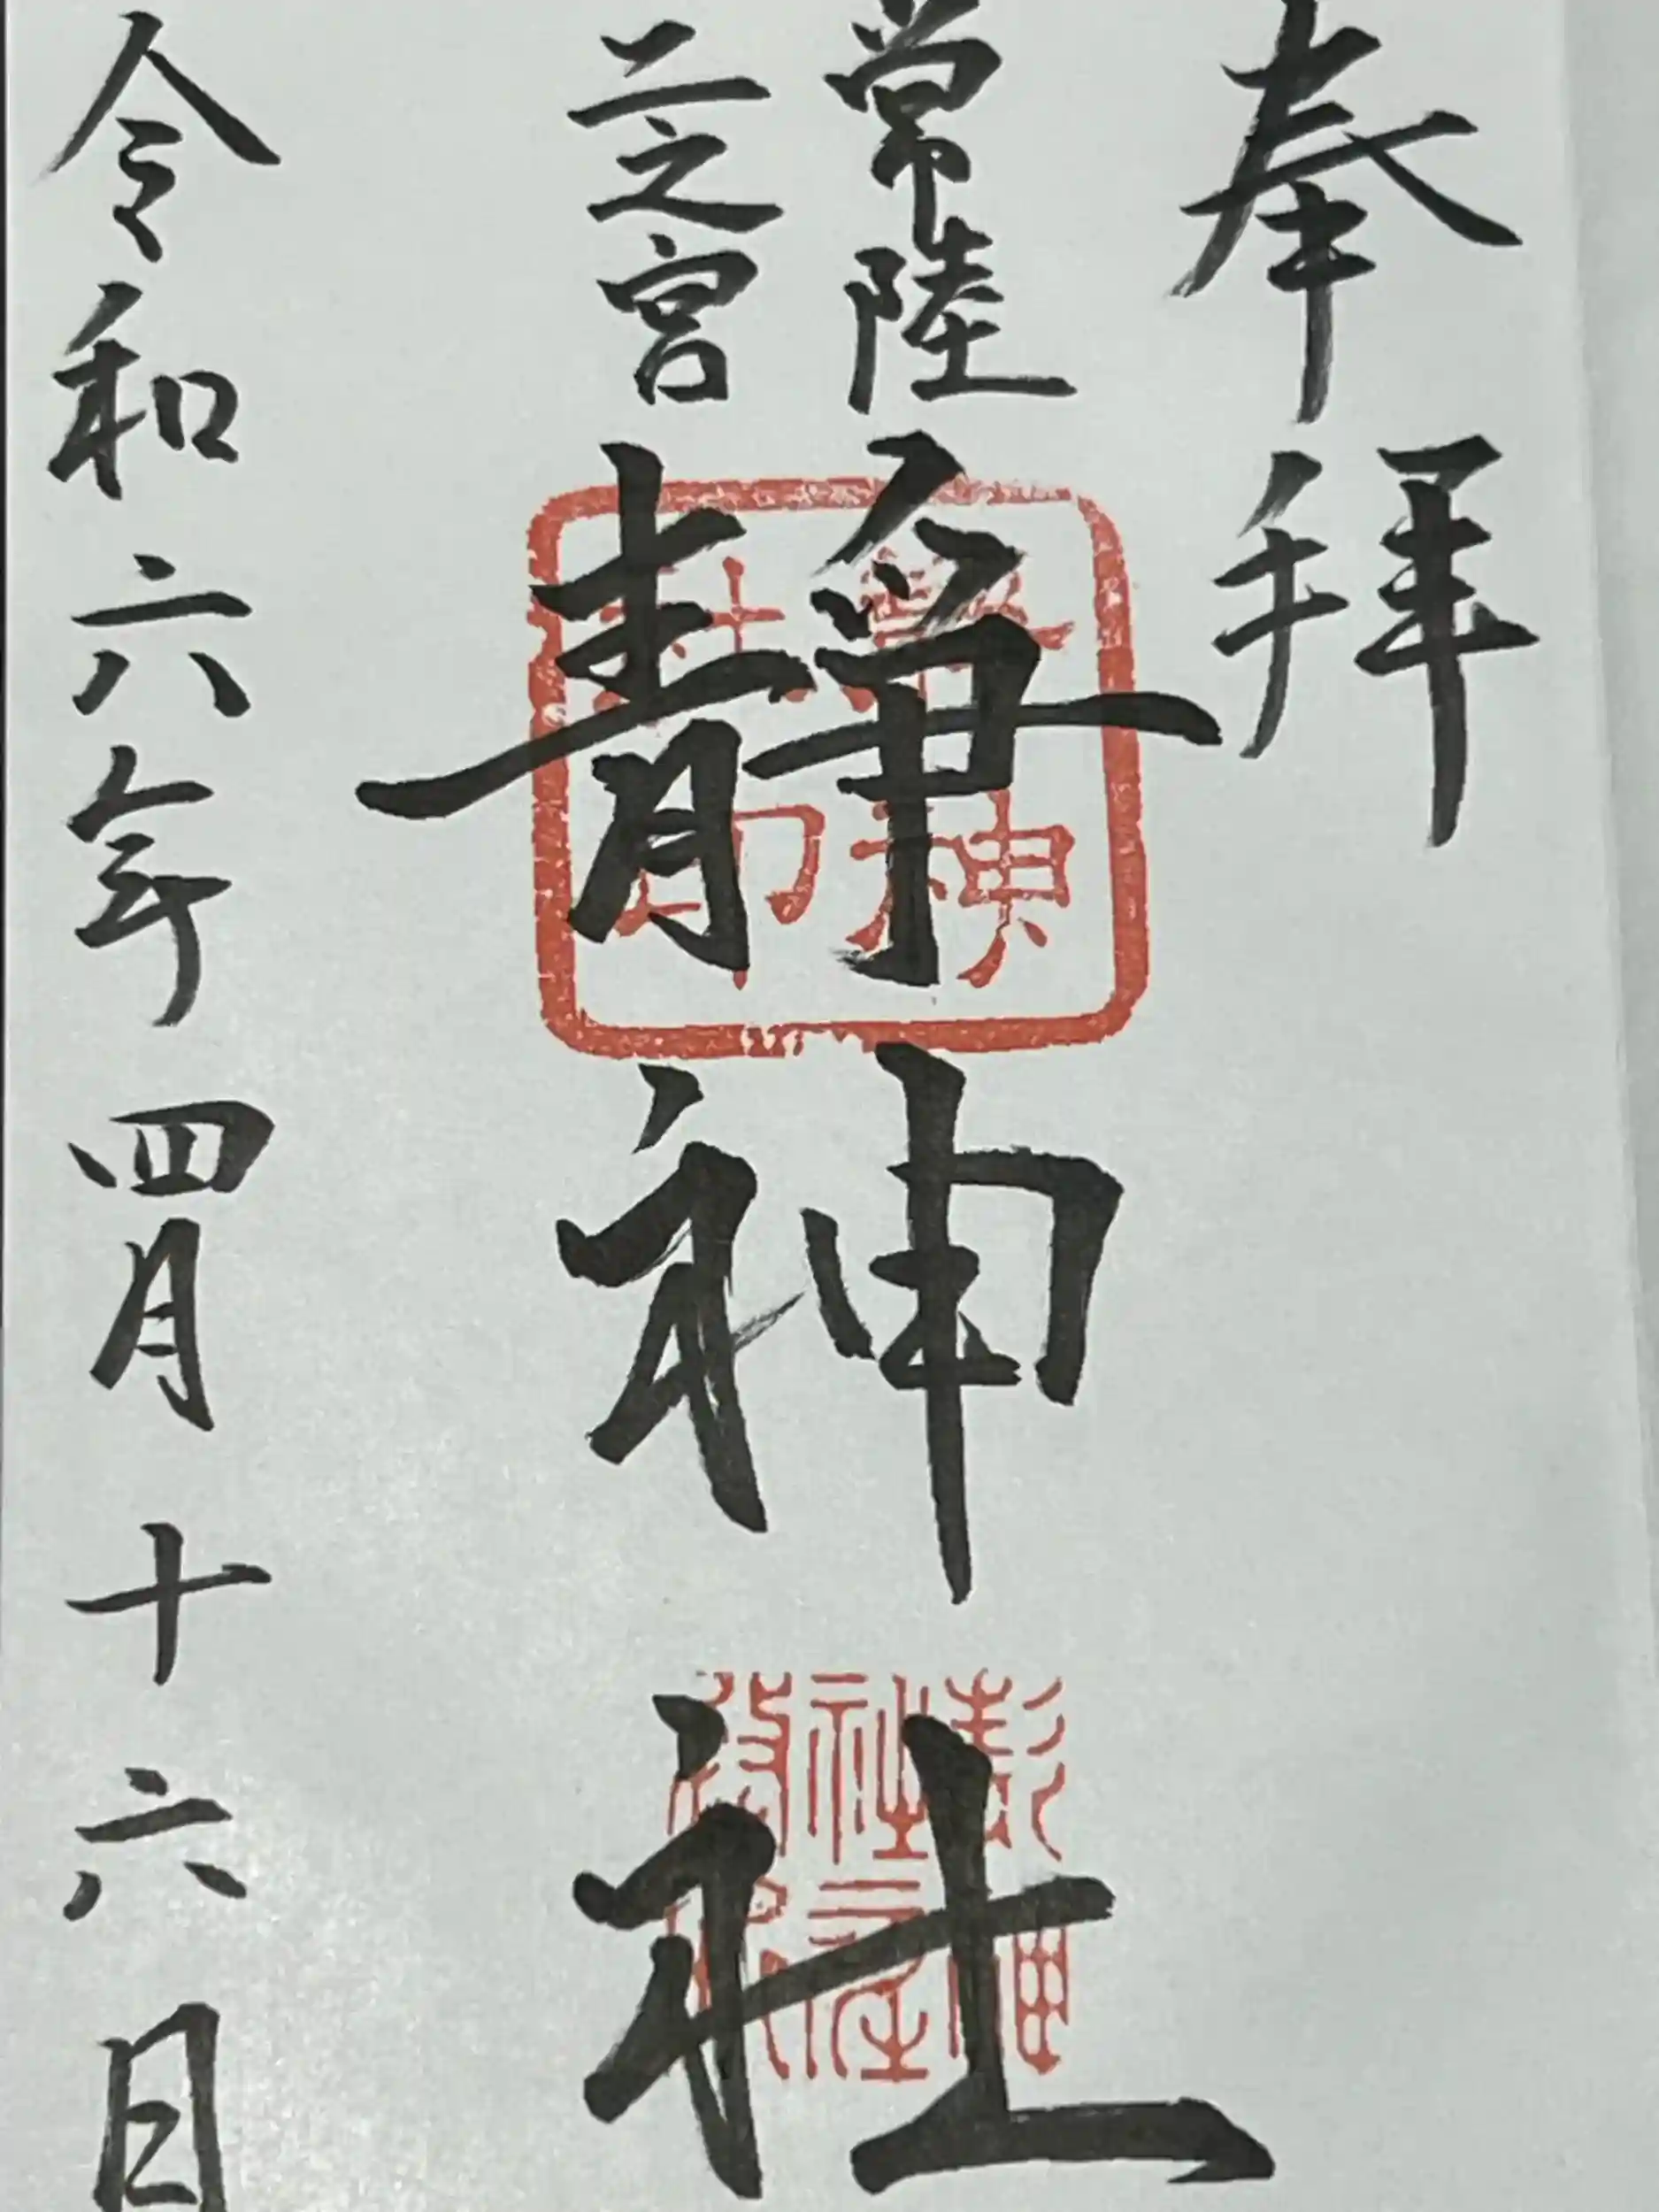 奉拝
常陸
二之宮
靜神社
令和六年四月十六日